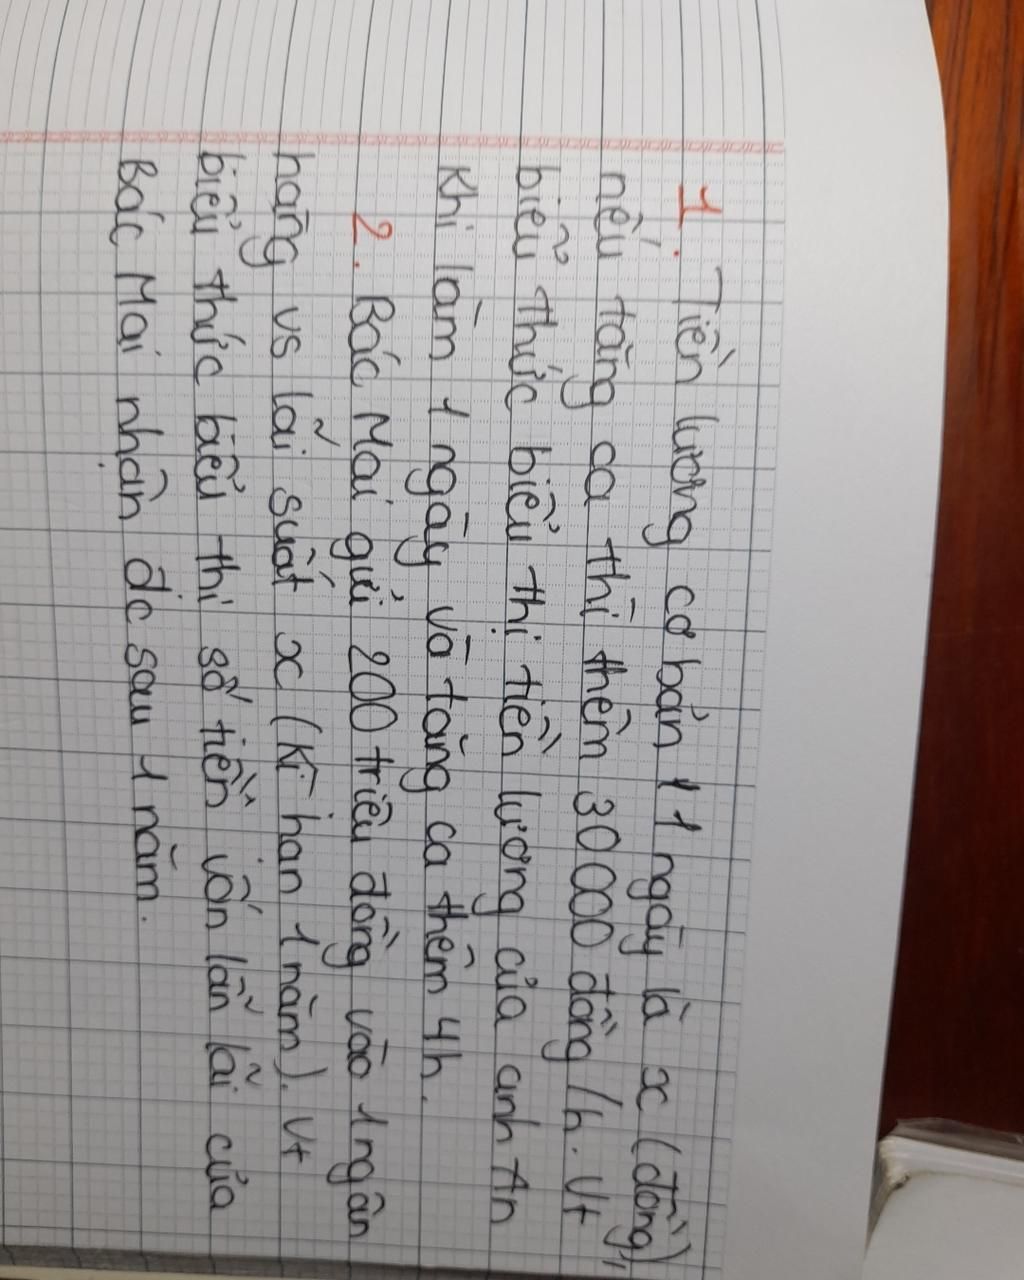 1. Tiền lương cơ bản 1 1 ngày là x (đồng),
nếu tăng ca thì thêm 30000 đồng /h. Vt
biểu thức biểu thị tiền lương của anh An
khi làm 1 ngày và tăng ca thêm 4h.
2. Bác Mai gửi 200 triệu đồng vào 1 ngân
hàng vs lãi suất x (Kì hạn 1 năm). Vt
biểu thức biểu thị số tiền vốn lẫn lãi của
Bác Mai nhận đc sau 1 năm.